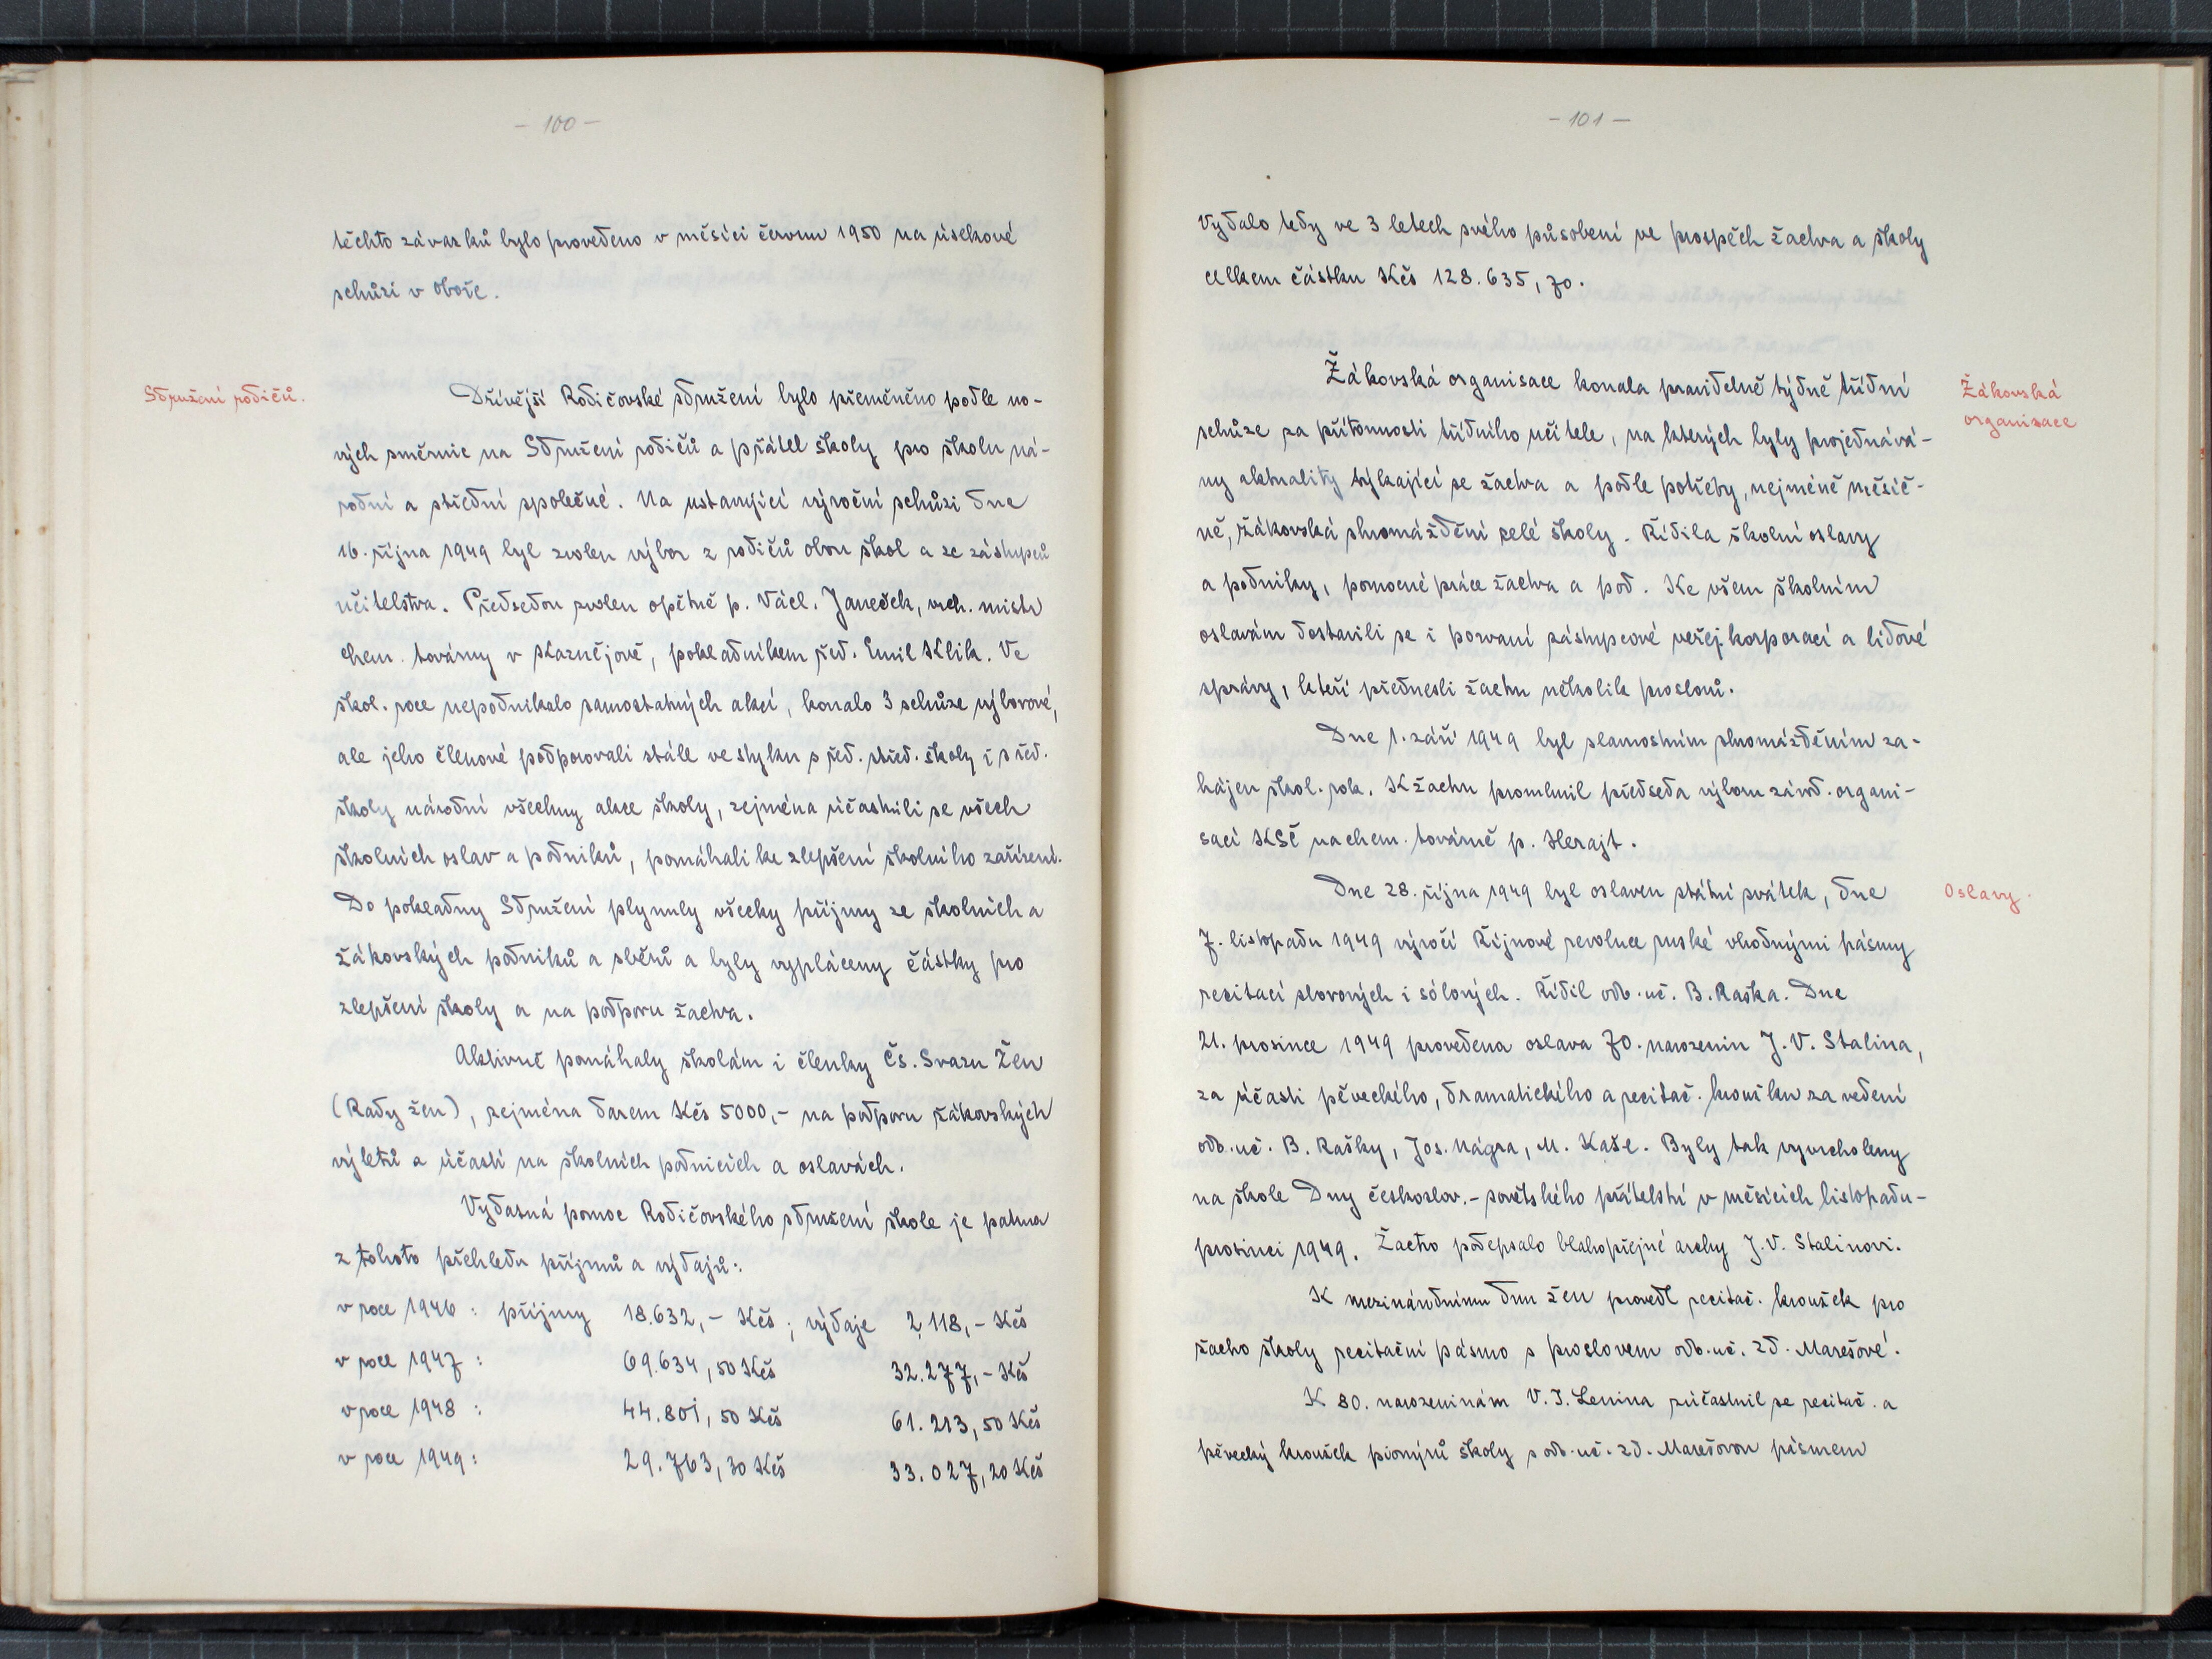 - 100 -
těchto závazků bylo provedeno v měsíci červnu 1950 na úsekové
schůzi v oboře.
Sdružení rodičů.
Dřívější Rodičovské sdružení bylo přeměněno podle no-
vých směrnic na Sdružení rodičů a přátel školy pro školu ná-
rodní a střední společné. Na ustavující výroční schůzi dne
16. října 1949 byl zvolen výbor z rodičů obou škol a ze zástupců
učitelstva. Předsedou zvolen opětně p. Václ. Janeček, vrch. mistr
chem. továrny v Kaznějově, pokladníkem řed. Emil Klik. Ve
škol. roce nepodnikalo samostatných akcí, konalo 3 schůze výborové,
ale jeho členové podporovali stále ve styku s řed. střed. školy i s řed.
školy národní všechny akce školy, zejména účastnili se všech
školních oslav a podniků, pomáhali ke zlepšení školního zařízení.
Do pokladny Sdružení plynuly všecky příjmy ze školních a
žákovských podniků a sběrů a byly vypláceny částky pro
zlepšení školy a na podporu žactva.
Aktivně pomáhaly školám i členky Čs. Svazu Žen
(Rady žen), zejména darem Kčs 5000,- na podporu žákovských
výletů a účastí na školních podnicích a oslavách.
Vydatná pomoc Rodičovského sdružení škole je patrna
z tohoto přehledu příjmů a výdajů:
v roce 1946 : příjmy 18.632,- Kčs ; výdaje 2.118,- Kčs
v roce 1947 : 69.634,50 Kčs 32.277,- Kčs
v roce 1948 : 44.801,50 Kčs 61.213,50 Kčs
v roce 1949 : 29.763,30 Kčs 33.027,20 Kčs
- 101 -
Vydalo tedy ve 3 letech svého působení ve prospěch žactva a školy
celkem částku Kčs 128.635,70.
Žákovská
organisace
Žákovská organisace konala pravidelně týdně třídní
schůze za přítomnosti třídního učitele, na kterých byly projednává-
ny aktuality týkající se žactva a podle potřeby, nejméně měsíč-
ně, žákovská shromáždění celé školy. Řídila školní oslavy
a podniky, pomocné práce žactva a pod. Ke všem školním
oslavám dostavili se i pozvaní zástupcové veřej. korporací a lidové
správy, kteří přednesli žactvu několik proslovů.
Dne 1. září 1949 byl slavnostním shromážděním za-
hájen škol. rok. K žactvu promluvil předseda výboru závod. organi-
saci KSČ na chem. továrně p. Herajt.
Oslavy.
Dne 28. října 1949 byl oslaven státní svátek, dne
7. listopadu 1949 výročí Říjnové revoluce ruské vhodnými pásmy
recitací sborových i sólových. Řídil odb. uč. B. Raška. Dne
21. prosince 1949 provedena oslava 70. narozenin J. V. Stalina,
za účasti pěveckého, dramatického a recitač. kroužku za vedení
odb. uč. B. Rašky, Jos. Nágra, M. Kaše. Byly tak vyvrcholeny
na škole Dny českoslov.- sovětského přátelství v měsících listopadu-
prosinci 1949. Žactvo podepsalo blahopřejné archy J. V. Stalinovi.
K mezinárodnímu dnu žen provedl recitač. kroužek pro
žactvo školy recitační pásmo s proslovem odb. uč. Zd. Marešové.
K 80. narozeninám V. I. Lenina zúčastnil se recitač. a
pěvecký kroužek pionýrů školy s odb. uč. Zd. Marešovou pásmem